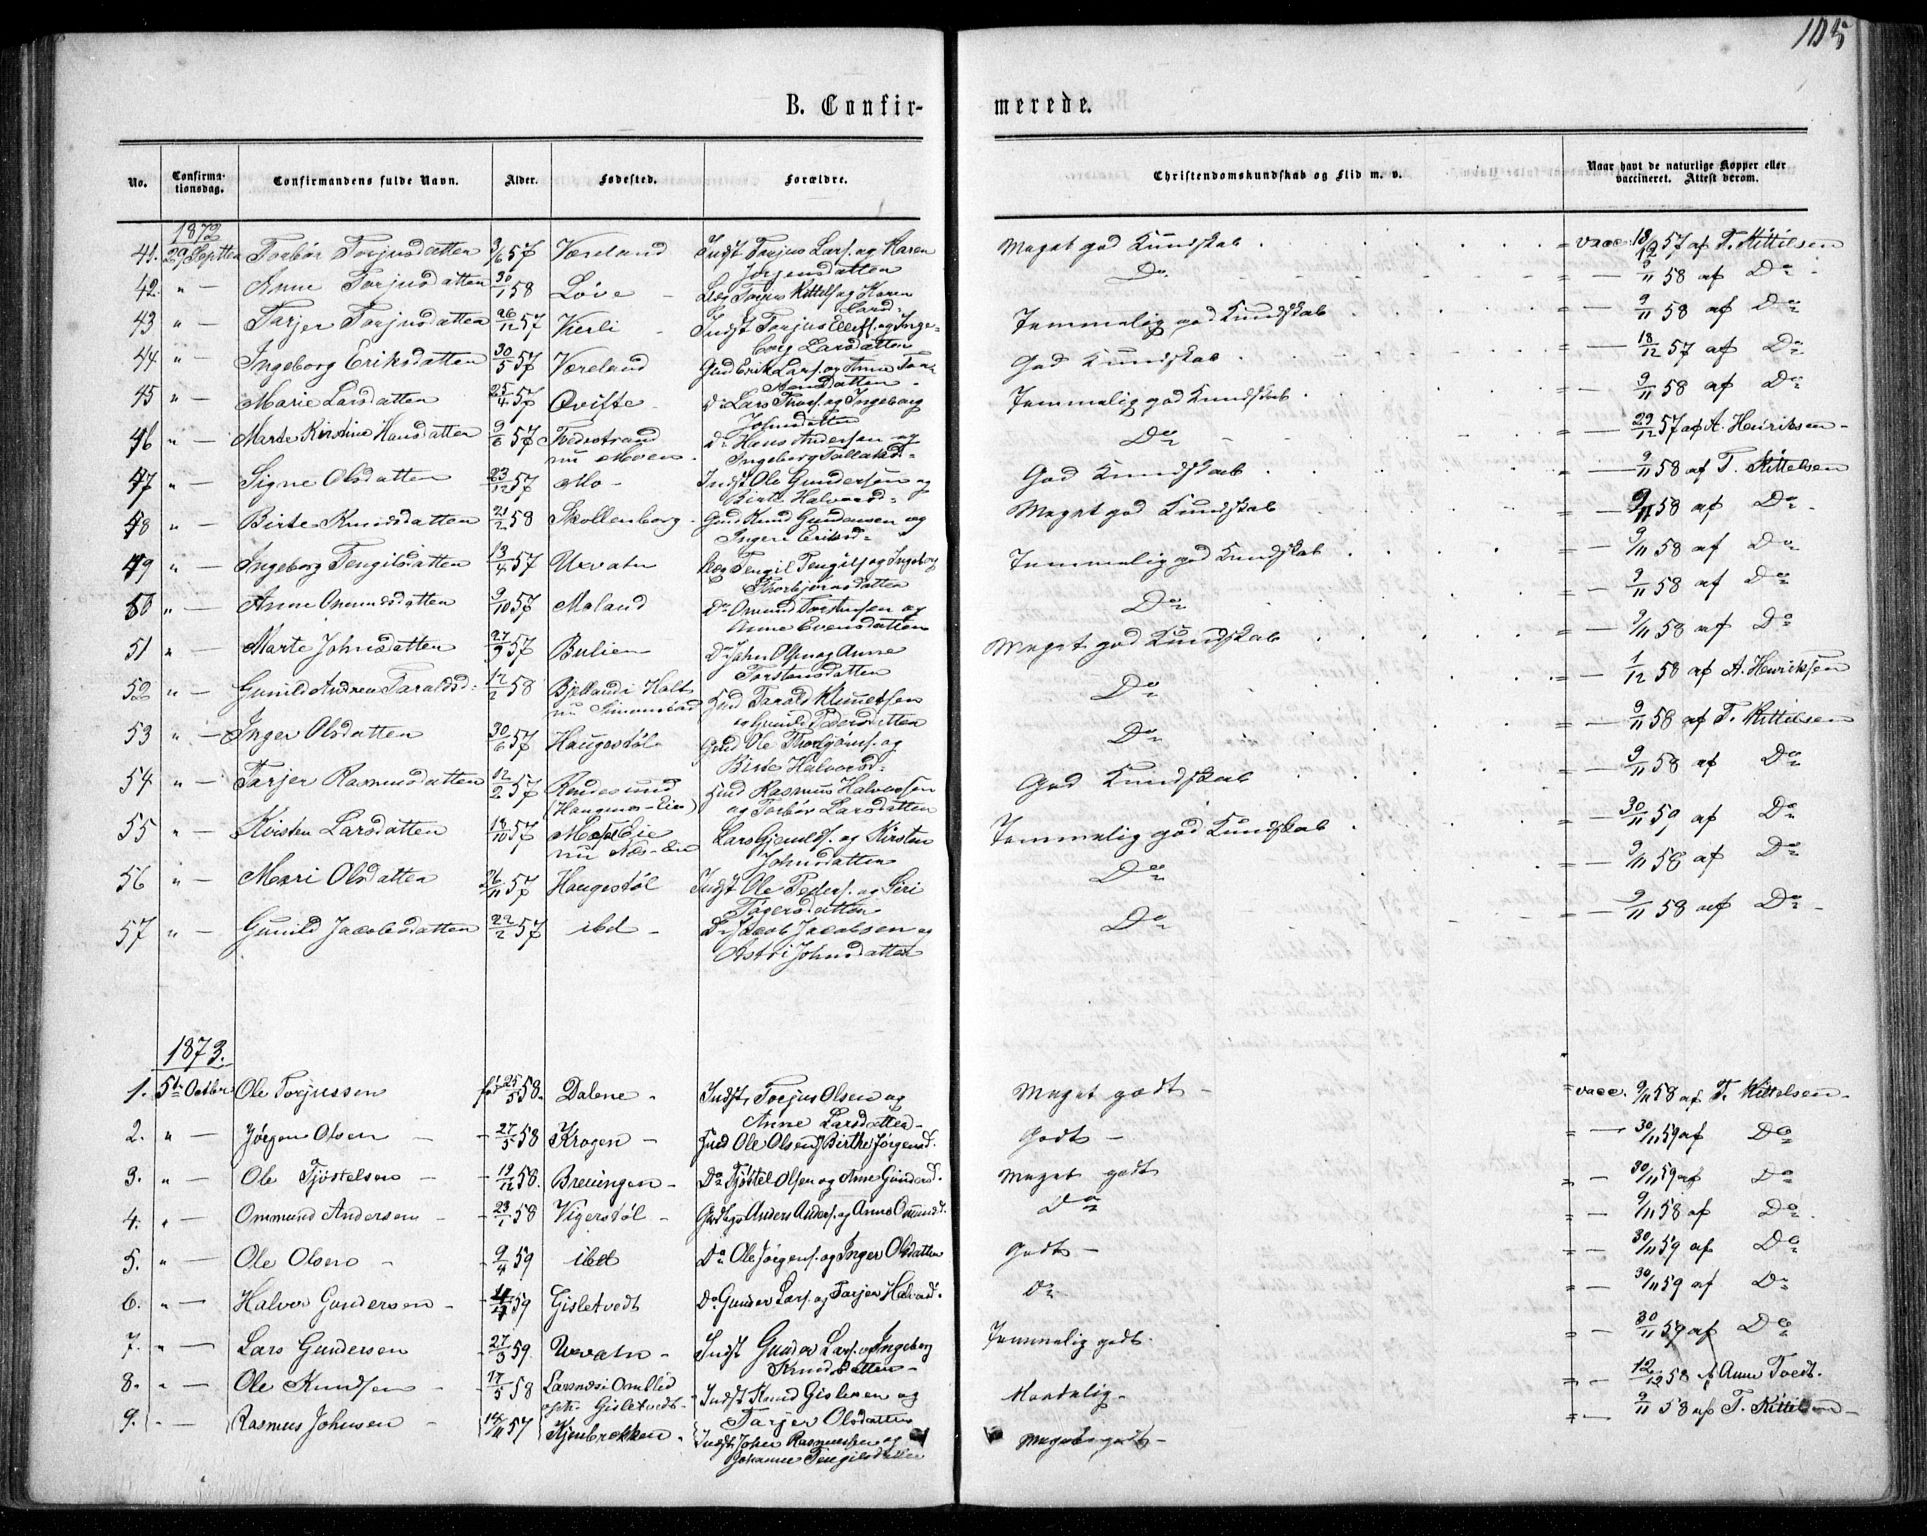 105
B. Confirmerede.
No. Confirmationsdag. Confirmandens fulde Navn. Alder. Fødested. Forældre. Christendomskundskab og Flid m. v. Naar havt de naturlige Kopper eller vaccineret. Attest derom.
1872
41. 29 Septbr Torbør Torjusdatten 3/6 57 Væreland Indst Torjus Lars. og Karen Jørgensdatten Meget god Kundskab = vacc. 18/12 57 af T. Kittelsen
42. " — Anne Torjusdatten 30/1 58 Løve — Torjus Kittels og Karen Larsd. Do = — 9/11 58 af Do
43 " — Tarjer Torjusdatten 26/12 57 Vierli Indst Torjus Ellefs. og Ingeborg Larsdatten Temmelig god Kundskab = — 9/11 58 af Do
44 " — Ingeborg Eriksdatten 30/5 57 Væreland Gmd Erik Lars. og Anne God Kundskab = — 18/12 57 af Do
45 " — Marie Larsdatten 25/4 57 Qviste Do Lars Thors. og Ingeborg Johnsdatten Temmelig god Kundskab = — 9/11 58 af Do
46 " — Marte Kirstine Hansdatten 9/6 57 Tvedestrand nu Moen Do Hans Andersen og Ingeborg Tallaksd. Do = — 29/12 57 af A. Henriksen
47 " — Signe Olsdatten 23/12 57 Mo — Indst Ole Gundersen og Birte Halvorsd = God Kundskab — 9/11 58 af T. Kittelsen
48 " — Birte Knudsdatten 21/2 58 Skollenborg Gmd Knud Gundersen og Ingeri Eriksd = Meget god Kundskab = — 9/11 58 af Do
49 " — Ingeborg Tengilsdatten 13/4 57 Uvatn Tengil Tengilss og Ingeborg Thorbjørnsdatten Temmelig god Kundskab = — 9/11 58 af Do
50 " — Anne Omundsdatten 9/10 57 Moland Do Omund Torstensen og Anne Evensdatten Do = — 9/11 58 af Do
51 " — Marte Johnsdatten 27/9 57 Bulien Do John Olsen og Anne Torstensdatten Meget god Kundskab = — 9/11 58 af Do
52 " — Gunild Andrea Taraldsd. 12/2 58 Bjelland i Holt nu Simonstad Hmd Tarald Klemetsen og Gunild Pedersdatten Do = — 1/12 58 af A. Henriksen
53 " — Inger Olsdatten 30/6 57 Haugestøl Gmd Ole Thorbjørns. og Birte Halvorsd = Do = — 9/11 58 af T. Kittelsen
54 " — Tarjer Rasmusdatten 12/2 57 (Haugenes-Eie) Hmd Rasmus Halvorsen og Torbør Larsdatten God Kundskab = — 9/11 58 af Do
55 " — Kirsten Larsdatten 18/10 57 nu Næs-Eie Lars og Kirsten Johnsdatten Temmelig god Kundskab = — 30/11 59 af Do
56 " — Mari Olsdatten 26/11 57 Haugestøl Indst Ole Peders. og Siri Tøgersdatten Do = — 9/11 58 af Do
57 " — Gunild Jacobsdatten 22/2 57 ibd — Do Jacob Jacobsen og Astri Johnsdatten Do = — 9/11 58 af Do
1873.
1. 5te Octbr Ole Torjussen født 25/5 58. Dalene Indst Torjus Olsen og Anne Larsdatten Meget godt — = vacc. 9/11 58 af T. Kittelsen
2. " — Jørgen Olsen — 27/5 58 Krogen — Hmd Ole Olsen & Birthe Jørgensd. Godt — = — 30/11 59 af Do
3. " — Ole Tjøstelsen — 19/12 58. Breiingen — Do Tjøstel Olsen og Anne Gundersd. Meget godt = — 30/11 59 af Do
4. " — Ommund Andersen — 23/1 58 Vigerstøl — Anders Anders. og Anne Ommundsd. Do = — 9/11 58 af Do
5. " — Ole Olsen — 9/4 59 ibd Do Ole Jørgens. og Inger Olsdatten Godt — = — 30/11 59 af Do
6. " — Halvor Gundersen — 59 Gisletvedt Do Gunder Lars. og Tarjer Halvorsd. Do = — 30/11 59 af Do
7. " — Lars Gundersen — 27/3 59. Uvatn — Indst Gunder Lars. og Ingeborg Knudsdatten Temmelig godt. = — 30/11 59 af Do
8. " — Ole Knudsen — 17/5 58 Gisletvedt Indst Knud Gislesen og Tarjer Olsdatten Maadelig. = — 12/12 58 af Anne Tvedt.
9. " — Rasmus Johnsen — 14/11 57 Kjenbrekken Indst John Rasmussen og Johanne Tengilsdatten Meget godt — = — 9/11 58 af T. Kittelsen